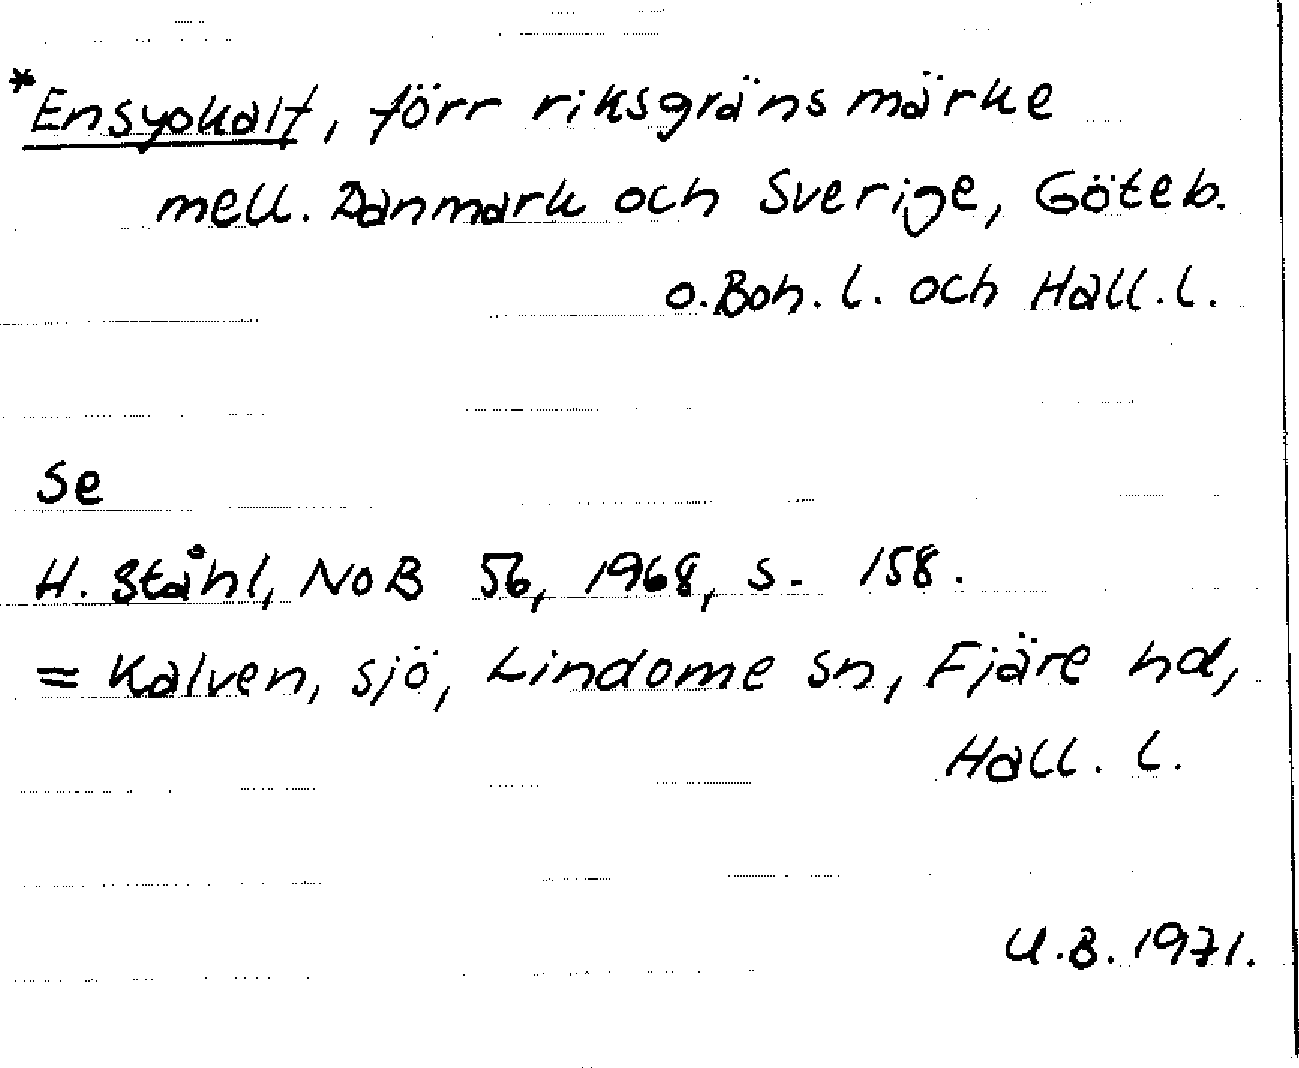 *Ensyokalf, förr riksgränsmärke
mell. Danmark och Sverige, Göteb.
o. Boh. l. och Hall. l.
Se
H. Ståhl, NoB 56, 1968, s. 158.
= Kalven, sjö, Lindome sn, Fjäre hd,
Hall. l.
U.B. 1971.